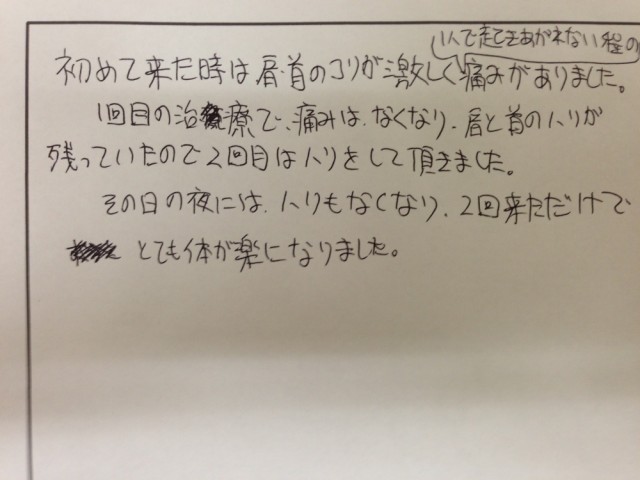 1人で起てきあがれない程の
初めて来た時は肩・首のコリが激しく痛みがありました。
1回目の治療で、痛みは、なくなり、肩と首のハリが
残っていたので2回目はハリをして頂きました。
その日の夜には、ハリもなくなり、2回来ただけで
とても体が楽になりました。